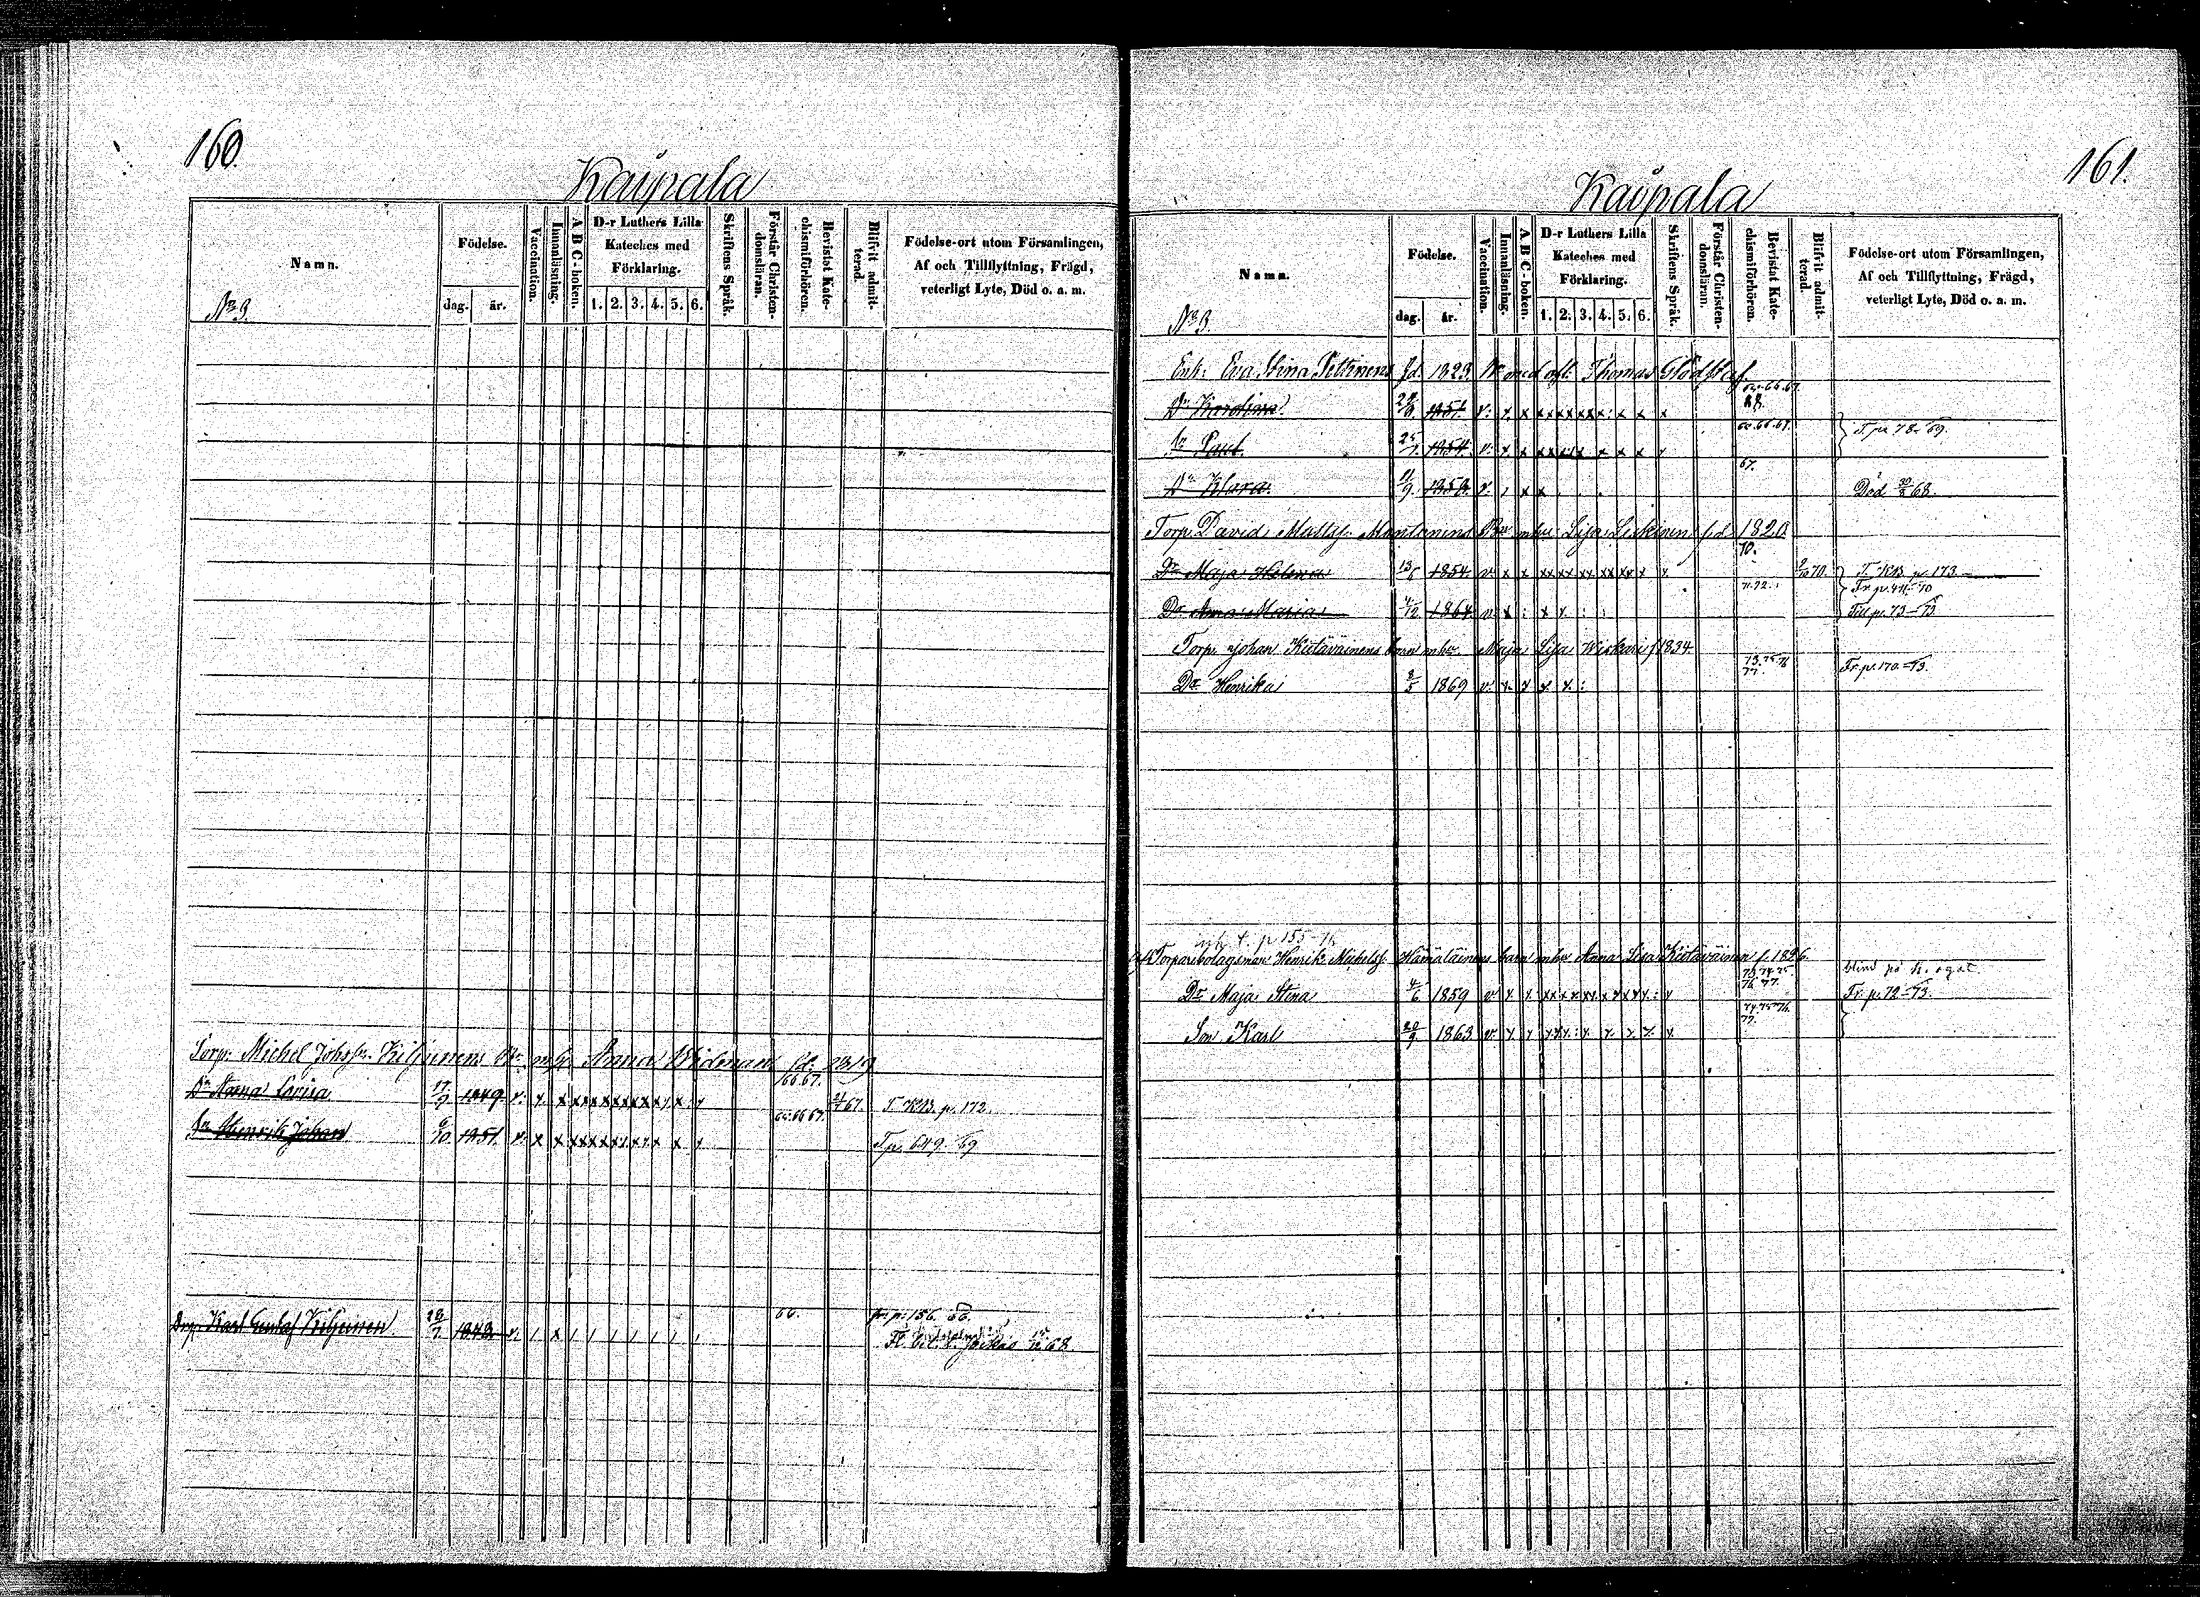 160.
Kaipala
Namn.
Födelse.
dag. år.
Vaccination.
Innanläsning.
A B C-boken.
D-r Luthers Lilla
Kateches med
Förklaring.
1. 2. 3. 4. 5. 6.
Skriftens Språk.
Förstår Christen-
domsläran.
Bevistat Kate-
chismiförhören.
Blifvit admit-
terad.
Födelse-ort utom Församlingen,
Af och Tillflyttning, Frägd,
veterligt Lyte, Död o. a. m.
N:o 3.
Torp. Michel Johss. Kiljunens Bn. m. h. Anna Widman fd. 1819
66 67.
Dr Anna Lovisa 17/9 1849 v. x x x x x x x x x x x 67. T. KB. p. 172.
66 67.
Sn Henrik Johan 6/10 1851. v. x x x x x x x x x x x T. p. 649.-69
Drg. Karl Gustaf Kiljunen. 28/7. 1848 v. / x / / / / / / / 66. fr. p. 156. 66.
Jorkas 68
161.
Kaipala
Namn.
Födelse.
dag. år.
Vaccination.
Innanläsning.
A B C-boken.
D-r Luthers Lilla
Kateches med
Förklaring.
1. 2. 3. 4. 5. 6.
Skriftens Språk.
Förstår Christen-
domsläran.
Bevistat Kate-
chismiförhören.
Blifvit admit-
terad.
Födelse-ort utom Församlingen,
Af och Tillflyttning, Frägd,
veterligt Lyte, Död o. a. m.
N:o 3.
Enk: Eva Stina Pettinens fd. 1823. med Thomas
Dr Karolina 1851. v. x x x x x x x x x x x 66.67. 68.
Sn Paul. 25/7. 1854. v. x x x x x x x x x x 66.67. T. p. 78-69.
Dr Klara. 11/9. 1858. v. / x x 67. Död 68.
Torp. David Mattss. Mantonens Bn m hu: Lisa Leskinen f.d. 1820.
Dr Maja Helena 13/6 1854. v. x x x x x x x x x x x 70. 70. T. KB. p. 173.
Dr Anna Maria 4/12 1864. v. x : x x : : 71.72. Till p. 73-73.
Torp. Johan Kiitäväinens barn m hu. Maja Lisa Wiskari f. 1834
Dr Henrika 8/5 1869 v. x. x x. x. : 73.75.76 77. Fr. p. 170.-73.
p 155-
Torparebolagsman Henrik Michelss. Hämäläinens barn m hu Anna Lisa Kiitäväinen f. 1826.
Dr Maja Stina 4/6 1859 v. x x x x x x x x x x x x 73.74.75 76 77. blind på h. ögat.
Fr. p. 72-73.
Son Karl 20/9. 1863 v. x x x x x : x x x x x. 74.75.76. 77.